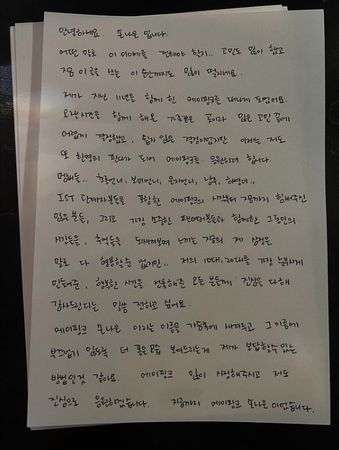 안녕하세요. 손나은 입니다.
어떤 말로 이 이야기를 전해야 할지.. 고민도 많이 했고
지금 이 글을 쓰는 이 순간까지도 많이 떨리네요.
제가 지난 11년을 함께 한 에이핑크를 떠나게 되었어요.
오랜시간을 함께 해온 가족같은 팀이라 많은 고민 끝에
어렵게 결정했고, 쉽지 않은 결정이었지만 이제는 저도
또 한명의 판다가 되어 에이핑크를 응원하려 합니다.
멤버들.. 초롱언니, 보미언니, 은지언니, 남주, 하영이..
IST 관계자분들을 포함한 에이핑크의 시작부터 지금까지 함께해주신
많은분들, 그리고 가장 소중한 판다여러분과 함께한 그동안의
시간들을, 추억들을 되새겨보며 느끼는 지금의 제 심정은
말로 다 형용할수 없지만.. 저의 10대, 20대를 가장 눈부시게
만들어준, 행복한 시간을 선물해준 모든 분들께 진심을 다해
감사드린다는 말을 전하고 싶어요.
에이핑크 손나은 이라는 이름을 가슴속에 새겨두고, 그 이름에
부끄럽지 않도록 더 좋은 모습 보여드리는게 제가 보답할수 있는
방법인것 같아요. 에이핑크 많이 사랑해주시고 저도
진심으로 응원하겠습니다. 지금까지 에이핑크 손나은 이었습니다.